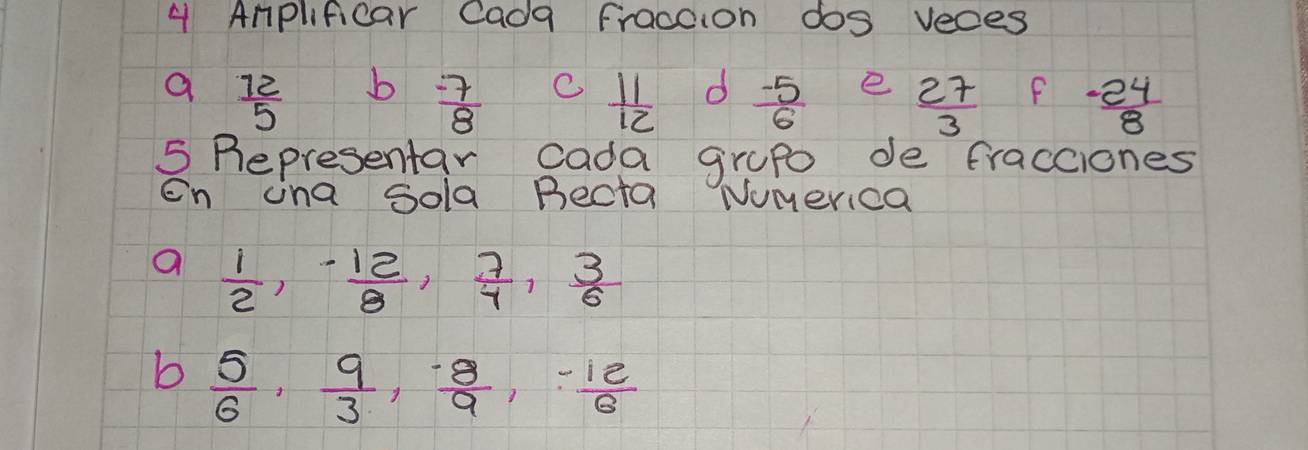 4 Amplificar Cada fraccion dos veces
a 12/5 b -7/8 c 11/12 d -5/6 e 27/3 f -24/8
5 Representar cada grupo de fracciones
En una Sola Recta Numerica
a 1/2, -12/8, 7/4, 3/6
b 5/6, 9/3, -8/9, -12/6